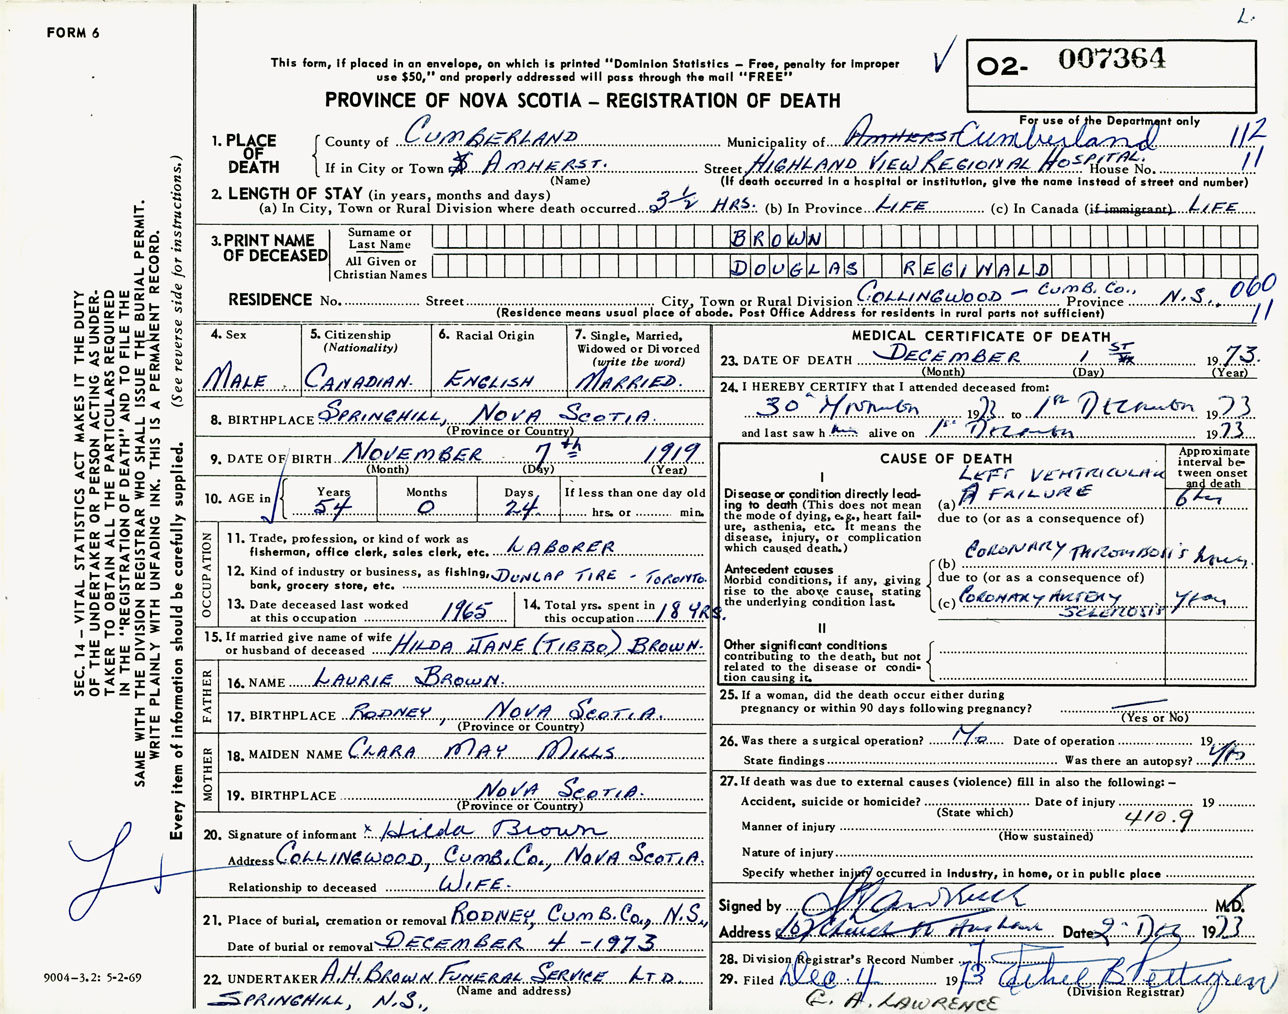 L.
FORM 6
This form, if placed in an envelope, on which is printed "Dominion Statistics – Free, penalty for improper
use $50," and properly addressed will pass through the mail "FREE"
O2- 007364
PROVINCE OF NOVA SCOTIA – REGISTRATION OF DEATH
For use of the Department only
1. PLACE OF DEATH
County of CUMBERLAND Municipality of AMHERST Cumberland 112
If in City or Town AMHERST. Street HIGHLAND VIEW REGIONAL HOSPITAL. House No. 11
(Name) (If death occurred in a hospital or institution, give the name instead of street and number)
2. LENGTH OF STAY (in years, months and days)
(a) In City, Town or Rural Division where death occurred 3½ HRS. (b) In Province LIFE (c) In Canada (if immigrant) LIFE
3. PRINT NAME OF DECEASED
Surname or Last Name BROWN
All Given or Christian Names DOUGLAS REGINALD
RESIDENCE No. Street City, Town or Rural Division COLLINGWOOD – CUMB. CO., Province N.S., 060
(Residence means usual place of abode. Post Office Address for residents in rural parts not sufficient) 11
4. Sex
MALE
5. Citizenship
(Nationality)
CANADIAN.
6. Racial Origin
ENGLISH
7. Single, Married,
Widowed or Divorced
(write the word)
MARRIED.
8. BIRTHPLACE SPRINGHILL, NOVA SCOTIA.
(Province or Country)
9. DATE OF BIRTH NOVEMBER 7th 1919
(Month) (Day) (Year)
10. AGE in
Years Months Days If less than one day old
54 0 24 hrs. or min.
OCCUPATION
11. Trade, profession, or kind of work as
fisherman, office clerk, sales clerk, etc. LABORER
12. Kind of industry or business, as fishing, DUNLAP TIRE – TORONTO
bank, grocery store, etc.
13. Date deceased last worked
at this occupation 1965
14. Total yrs. spent in
this occupation 18 YRS.
15. If married give name of wife
or husband of deceased HILDA JANE (TIBBO) BROWN.
FATHER
16. NAME LAURIE BROWN.
17. BIRTHPLACE RODNEY, NOVA SCOTIA.
(Province or Country)
MOTHER
18. MAIDEN NAME CLARA MAY MILLS.
19. BIRTHPLACE NOVA SCOTIA.
(Province or Country)
20. Signature of informant x Hilda Brown
Address COLLINGWOOD, CUMB. CO., NOVA SCOTIA.
Relationship to deceased WIFE.
21. Place of burial, cremation or removal RODNEY, CUMB. CO., N.S.,
Date of burial or removal DECEMBER 4 – 1973
22. UNDERTAKER A.H. BROWN FUNERAL SERVICE LTD.
(Name and address)
SPRINGHILL, N.S.,
MEDICAL CERTIFICATE OF DEATH
23. DATE OF DEATH DECEMBER 1 ST 1973.
(Month) (Day) (Year)
24. I HEREBY CERTIFY that I attended deceased from:
30th November 1973 to 1st December 1973
and last saw him alive on 1st December 1973
CAUSE OF DEATH
Approximate
interval be-
tween onset
and death
I
Disease or condition directly lead-
ing to death (This does not mean
the mode of dying, e.g., heart fail-
ure, asthenia, etc. It means the
disease, injury, or complication
which caused death.)
LEFT VENTRICULAR
(a) FAILURE
due to (or as a consequence of)
Antecedent causes
Morbid conditions, if any, giving
rise to the above cause, stating
the underlying condition last.
(b) CORONARY THROMBOSIS hours
due to (or as a consequence of)
(c) CORONARY ARTERY SCLEROSIS years
II
Other significant conditions
contributing to the death, but not
related to the disease or condi-
tion causing it.
25. If a woman, did the death occur either during
pregnancy or within 90 days following pregnancy? —
(Yes or No)
26. Was there a surgical operation? No Date of operation 19
State findings Was there an autopsy?
27. If death was due to external causes (violence) fill in also the following: –
Accident, suicide or homicide? Date of injury 19
(State which) 410.9
Manner of injury
(How sustained)
Nature of injury
Specify whether injury occurred in industry, in home, or in public place
Signed by M.D.
Address Date 2nd Dec 1973
28. Division Registrar's Record Number
29. Filed Dec 4 1973 Ethel B Pettigrew
(Division Registrar)
G. A. LAWRENCE
SEC. 14 – VITAL STATISTICS ACT MAKES IT THE DUTY
OF THE UNDERTAKER OR PERSON ACTING AS UNDER-
TAKER TO OBTAIN ALL THE PARTICULARS REQUIRED
IN THE "REGISTRATION OF DEATH" AND TO FILE THE
SAME WITH THE DIVISION REGISTRAR WHO SHALL ISSUE THE BURIAL PERMIT.
WRITE PLAINLY WITH UNFADING INK. THIS IS A PERMANENT RECORD.
Every item of information should be carefully supplied. (See reverse side for instructions.)
9004-3.2: 5-2-69